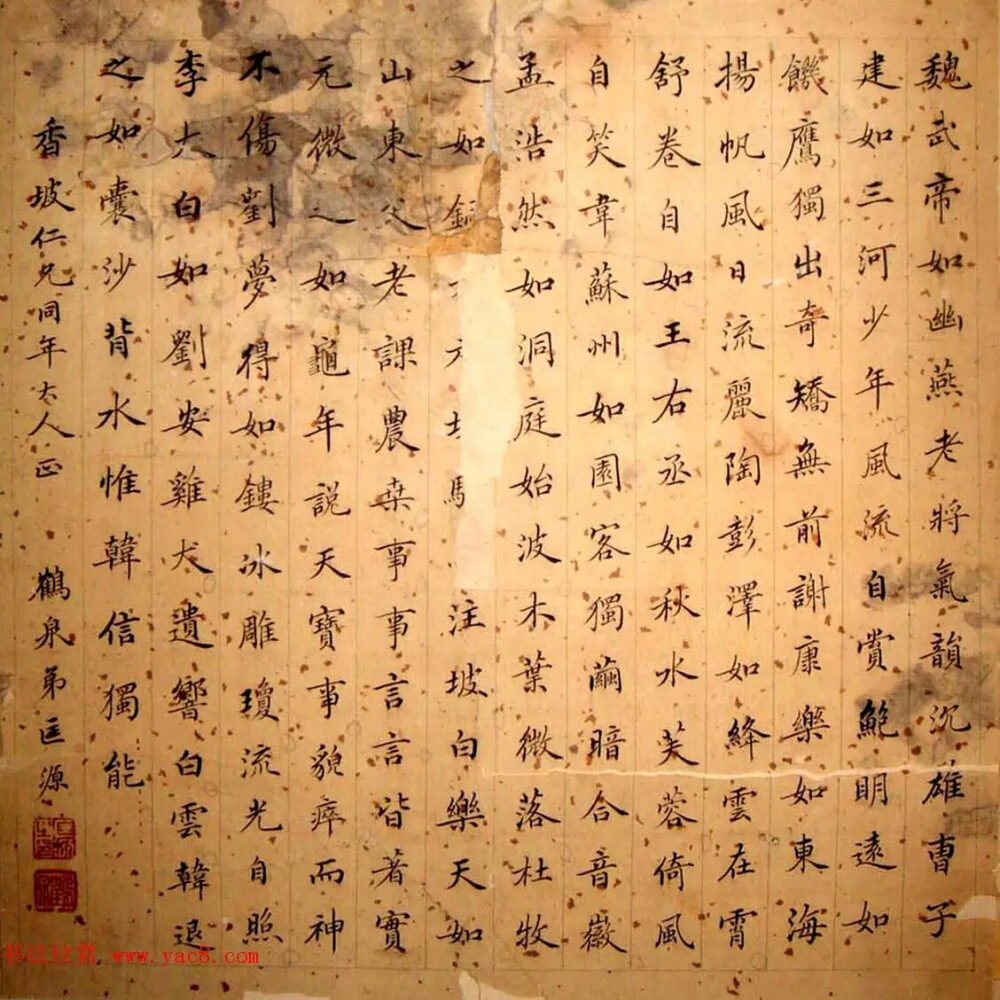 魏武帝如幽燕老將氣韻沉雄曹子
建如三河少年風流自賞鮑明遠如
饑鷹獨出奇矯無前謝康樂如東海
揚帆風日流麗陶彭澤如絳雲在霄
舒卷自如王右丞如秋水芙蓉倚風
自笑韋蘇州如園客獨繭暗合音徽
孟浩然如洞庭始波木葉微落杜牧
之如銅注坡白樂天如
山東父老課農桒事事言言皆著實
元微之如龜年説天寶事貌瘁而神
不傷劉夢得如鏤冰雕瓊流光自照
李大白如劉安雞犬遺響白雲韓退
之如囊沙背水惟韓信獨能
香坡仁兄同年大人正 鶴泉弟匡源
书法欣赏 www.yac8.com